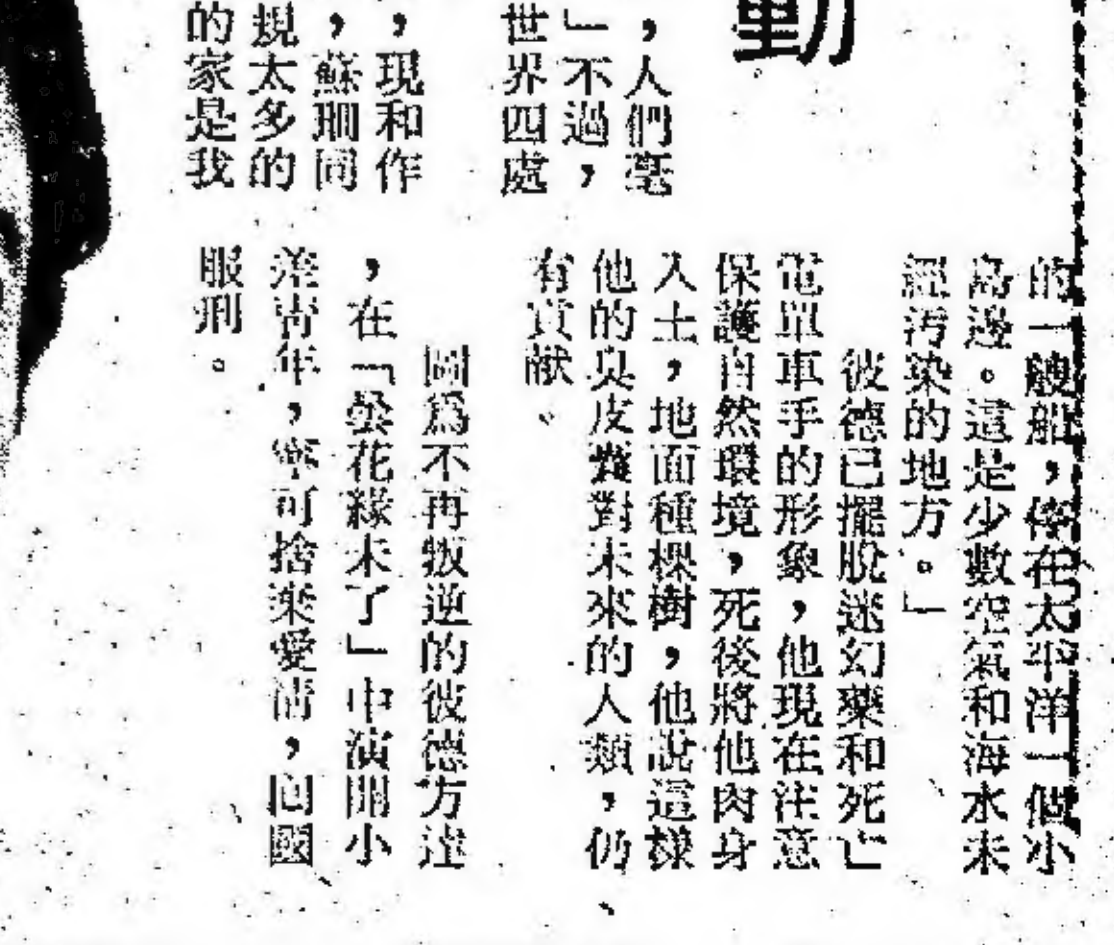 動
，人們毫
」不過，
世界四處
，現和作
，蘇珊同
規太多的
的家是我
的一艘船，停在太平洋一個小
島邊。這是少數空氣和海水未
經污染的地方。」
彼德已擺脫迷幻藥和死亡
電單車手的形象，他現在注意
保護自然環境，死後將他肉身
入土，地面種棵樹，他說這樣
他的臭皮囊對未來的人類，仍
有貢献。
圖爲不再叛逆的彼德方達
，在「曇花緣未了」中演開小
差青年，寧可捨棄愛情，囘國
服刑。